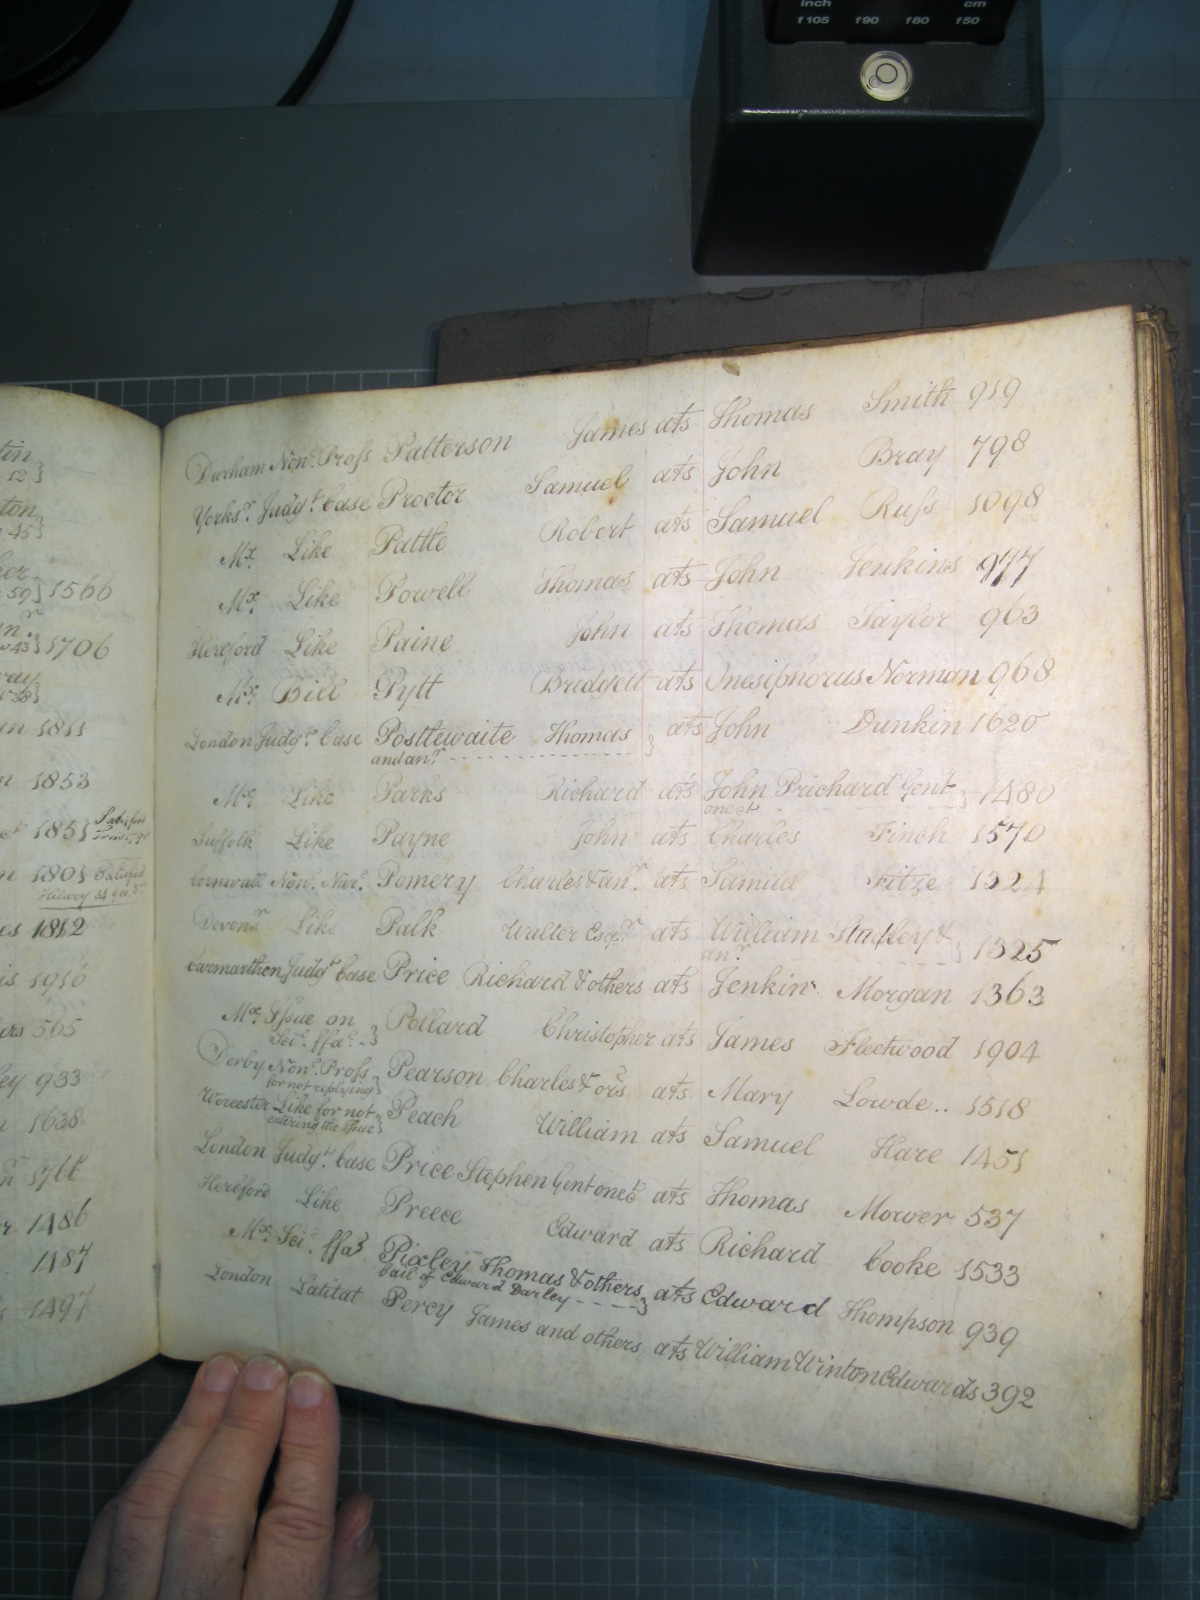 inch cm
f105 f90 f80 f50
Durham Non. Pross Patterson James ats Thomas Smith 919
Yorks.r Judg.t Case Proctor Samuel ats John Bray 798
Mx. Like Pattle Robert ats Samuel Russ 1098
Mx. Like Powell Thomas ats John Jenkins 977
Hereford Like Paine John ats Thomas Taylor 963
Mx. Bill Pytt Bridgett ats Onesiphorus Norman 968
London Judg.t Case Postlewaite Thomas } ats John Dunkin 1620
and an.r
Mx. Like Parks Richard ats John Prichard Gent } 1480
one et
Suffolk Like Payne John ats Charles Finch 1570
Cornwall Non. Pomery Charles & an.r ats Samuel Fitze 1324
Devon Like Palk Walter Esq.r ats William &
an.r } 1325
Carmarthen Judg.t Case Price Richard & others ats Jenkin Morgan 1363
Mx. Issue on
Sci. ffa. } Pollard Christopher ats James Fleetwood 1904
Derby Non. Pross
for not replying } Pearson Charles & ors ats Mary Lowde.. 1518
Worcester Like for not
entering the Issue } Peach William ats Samuel Hare 1451
London Judg.t Case Price Stephen Gent one &c ats Thomas Morver 537
Hereford Like Preece Edward ats Richard Cooke 1533
Mx. Sci. ffa } Pixley Thomas & others
bail of Edward Darley } ats Edward Thompson 939
London Latitat Percy James and others ats William Winton Edwards 392
12 }
45 }
59 } 1566
43 } 1706
1811
1853
1851 } Satisfied
1801 } Satisfied
Hilary 34 Geo. 3
1812
1916
565
933
1638
1766
1486
1487
1497